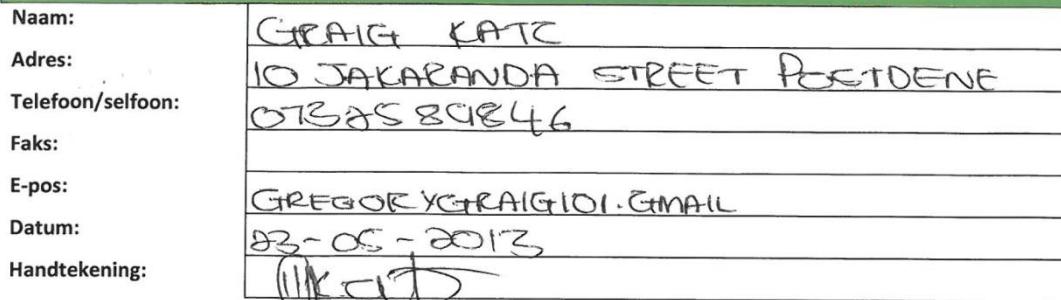 Naam: GRAIG KATC
Adres: 10 JAKARANDA STREET POSTDENE
Telefoon/selfoon: 0732589846
Faks:
E-pos: GREGORYGRAIG101.GMAIL
Datum: 23-05-2013
Handtekening: